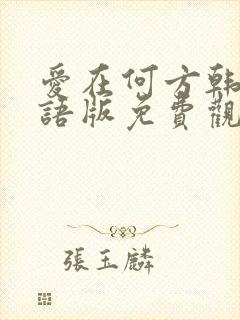 愛在何方韩
語版免費觀
張玉麟